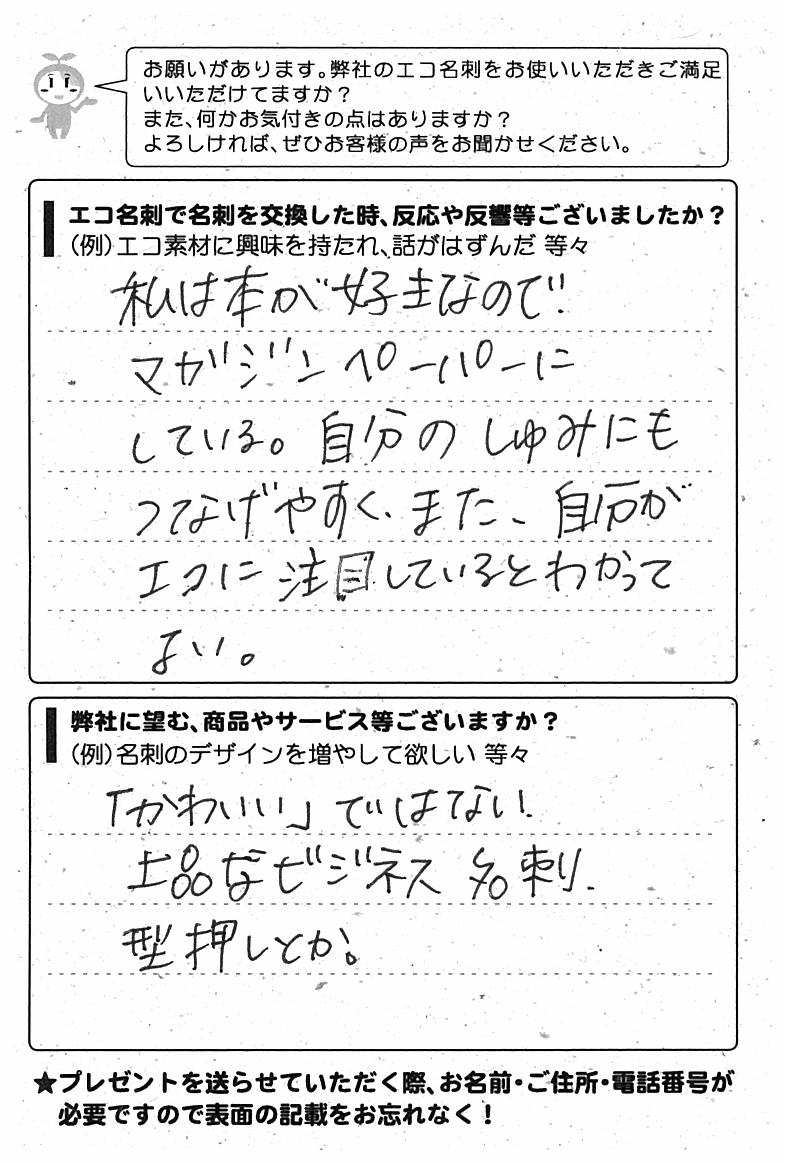 お願いがあります。弊社のエコ名刺をお使いいただきご満足
いいただけてますか？
また、何かお気付きの点はありますか？
よろしければ、ぜひお客様の声をお聞かせください。
エコ名刺で名刺を交換した時、反応や反響等ございましたか？
（例）エコ素材に興味を持たれ、話がはずんだ 等々
私は本が好きなので
マガジンペーパーに
している。自分のしゅみにも
つなげやすく、また、自分が
エコに注目しているとわかって
よい。
弊社に望む、商品やサービス等ございますか？
（例）名刺のデザインを増やして欲しい 等々
「かわいい」ではない
上品なビジネス名刺。
型押しとか。
★プレゼントを送らせていただく際、お名前・ご住所・電話番号が
必要ですので表面の記載をお忘れなく！